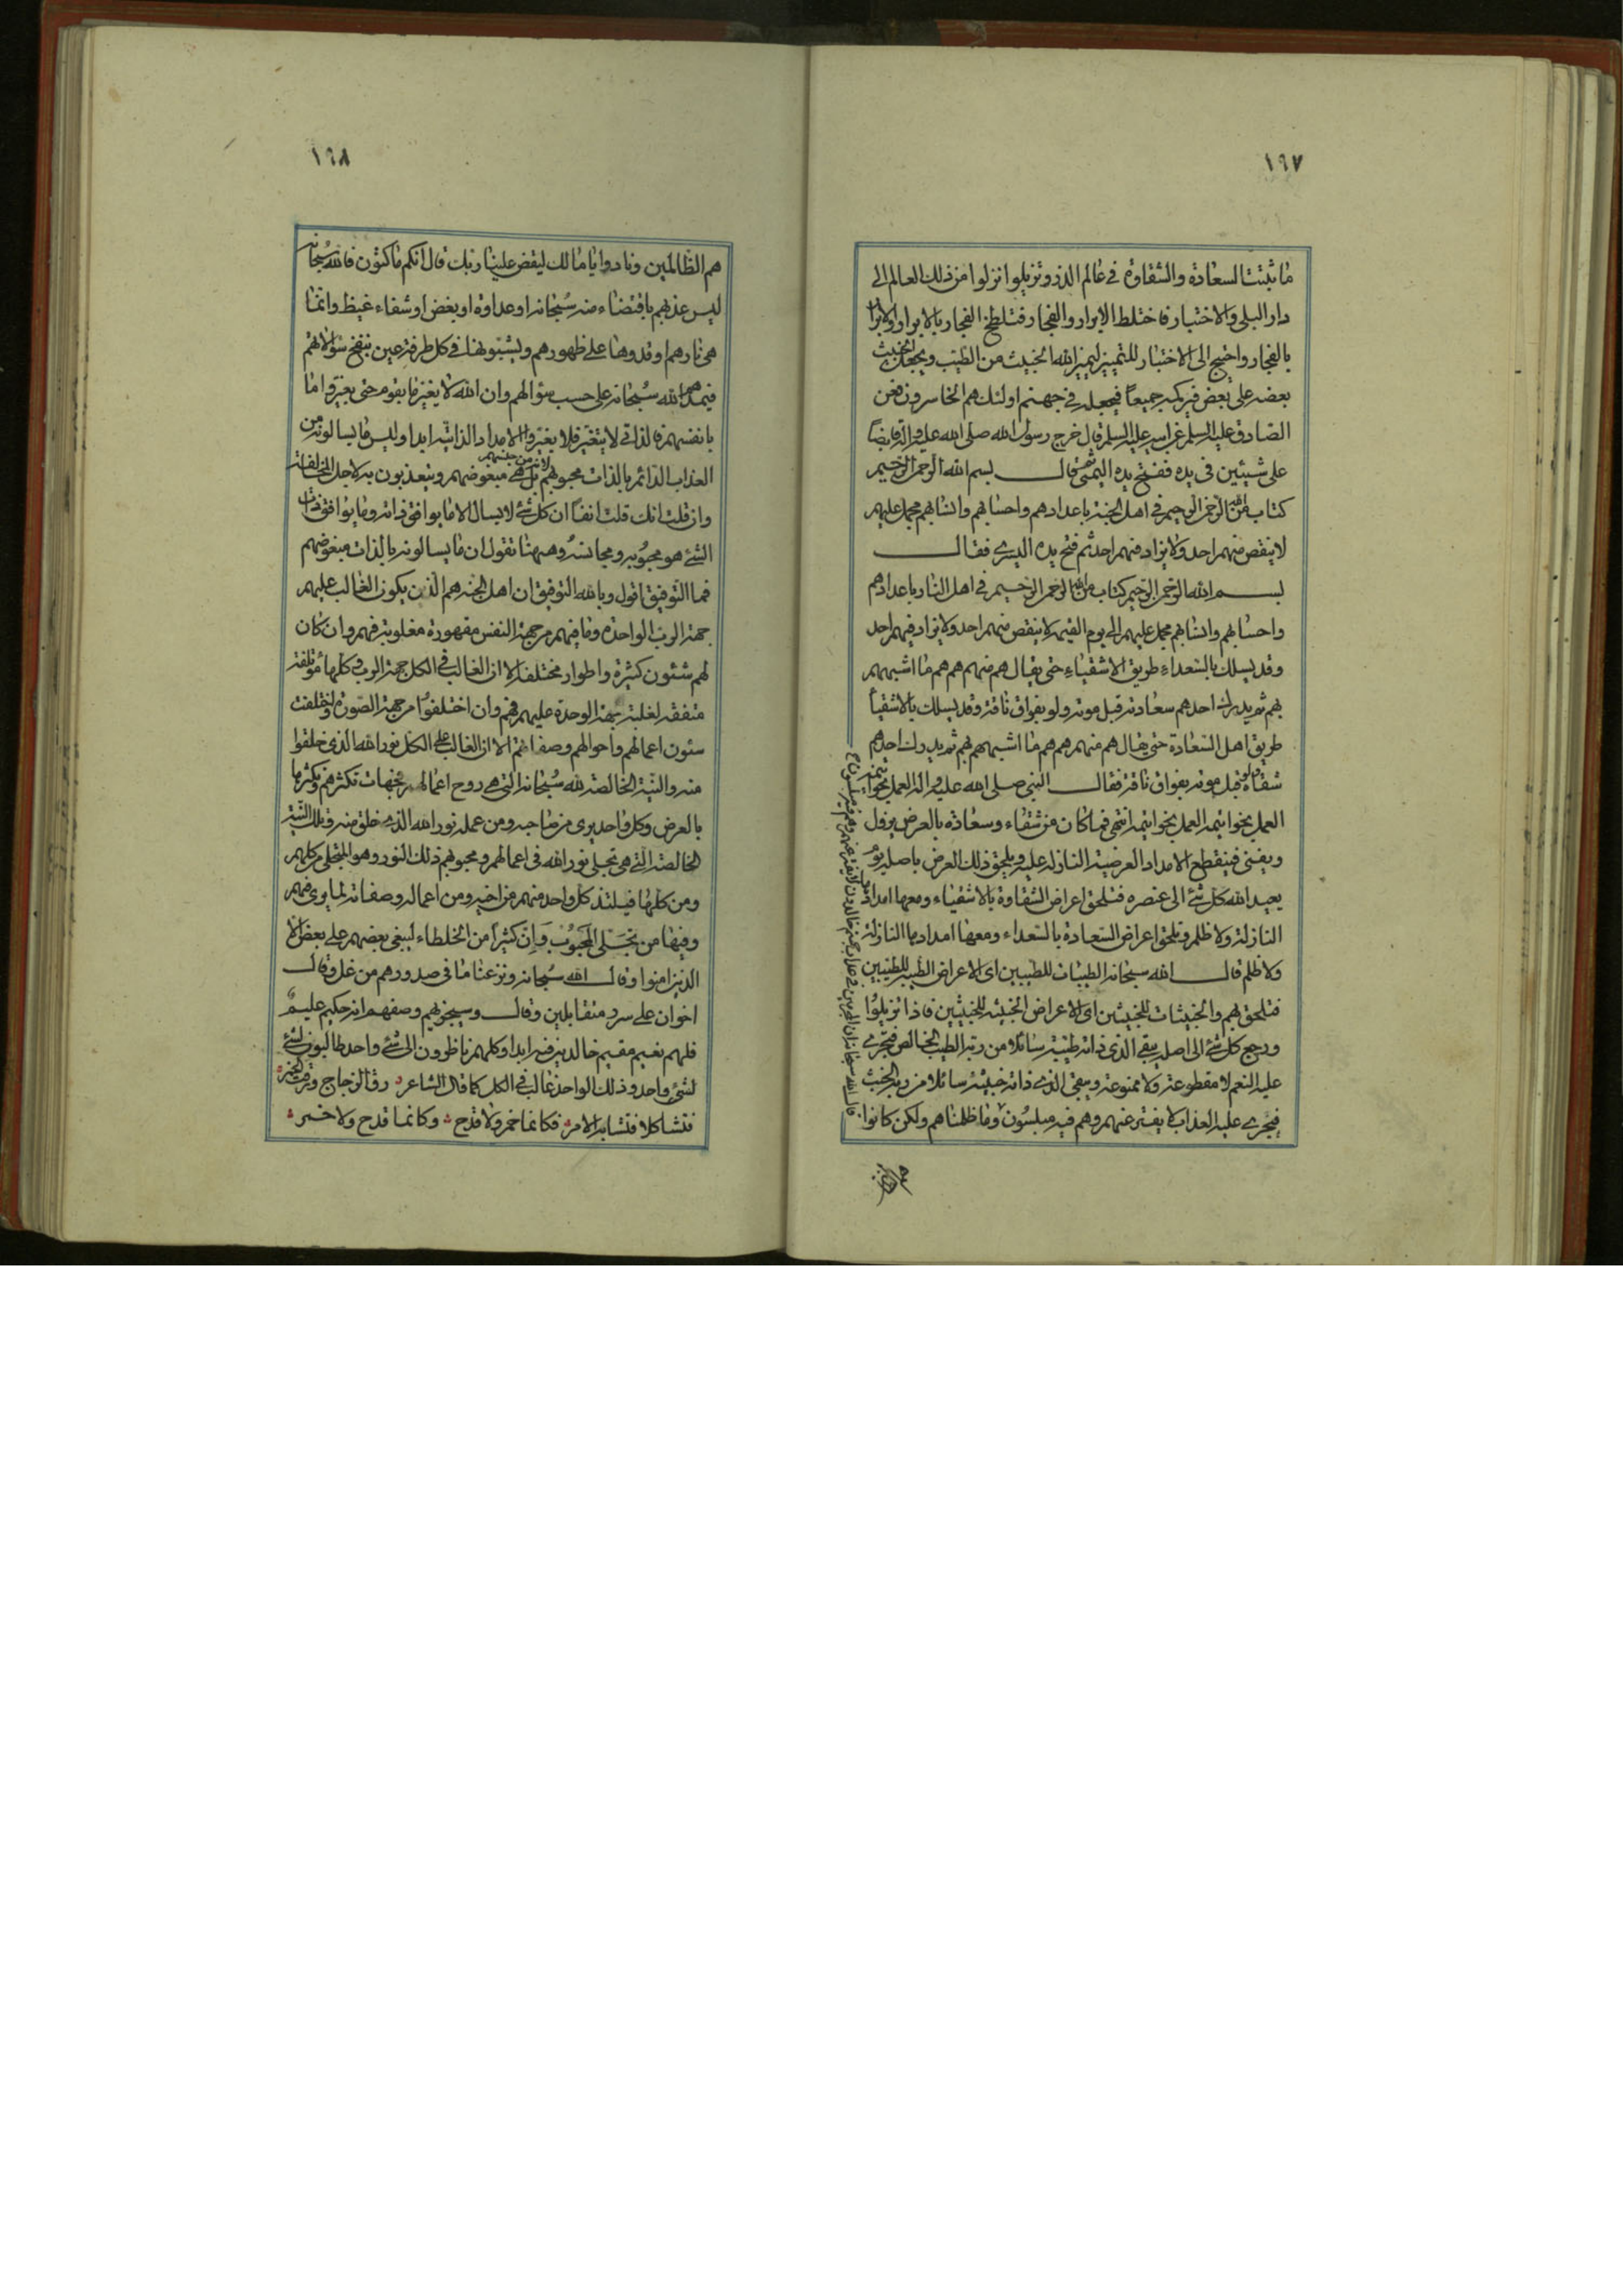 ١٦٧
ما ثبتت السعادة والشقاوة في عالم الذر وتزيلوا نزلوا من ذلك العالم الى
دار البلى والاختبار فاختلط الابرار والفجار فتلطخ الفجار بالابرار والابرار
بالفجار واحتيج الى الاختبار للتمييز ليميز الله الخبيث من الطيب ويجعل الخبيث
بعضه على بعض فيركمه جميعاً فيجعله في جهنم اولئك هم الخاسرون فعن
الصادق عليه السلم عن ابيه عليه السلم قال خرج رسول الله صلى الله عليه واله قابضاً
على شيئين في يده ففتح يده اليمنى ثم قال بسم الله الرحمن الرحيم
كتاب من الرحمن الرحيم في اهل الجنة باعدادهم واحسابهم وانسابهم مجمل عليهم
لا ينقص منهم احد ولا يزاد فيهم احد ثم فتح يده اليسرى فقال
بسم الله الرحمن الرحيم كتاب من الله الرحمن الرحيم في اهل النار باعدادهم
واحسابهم وانسابهم مجمل عليهم الى يوم القيمه لا ينقص منهم احد ولا يزاد فيهم احد
وقد يسلك بالسعداء طريق الاشقياء حتى يقال هم منهم هم هم ما اشبههم
بهم ثم يدرك احدهم سعادته قبل موته ولو بفواق ناقة وقد يسلك بالاشقياء
طريق اهل السعادة حتى يقال هم منهم هم هم ما اشبههم بهم ثم يدرك احدهم
شقاه ولو قبل موته بفواق ناقة فقال النبي صلى الله عليه واله العمل بخواتيمه
العمل بخواتيمه العمل بخواتيمه انتهى فما كان من شقاء وسعادة بالعرض يزول
ويفنى فينقطع الامداد العرضية النازلة عليه ويلحق ذلك العرض باصله يوم
يعيد الله كل شئ الى عنصره فتلحق اعراض الشقاوة بالاشقياء ومعها امدادها
النازلة ولا ظلم وتلحق اعراض السعادة بالسعداء ومعها امدادها النازلة
ولا ظلم قال الله سبحانه الطيبات للطيبين اى الاعراض الطيبه للطيبين
فتلحق بهم والخبيثات للخبيثين اى الاعراض الخبيثه للخبيثين فاذا تزيلوا
ورجع كل شئ الى اصله يبقى الذي ذاته طيبة سائلا من ربه الطيب الخالص فيجري
عليه النعم لا مقطوعة ولا ممنوعة ويبقى الذي ذاته خبيثة سائلا من ربه الخبث
فيجري عليه العذاب لا يفتر عنهم وهم فيه مبلسون وما ظلمناهم ولكن كانوا
قال الله سبحانه ان المجرمين في عذاب جهنم خالدون لا يفتر عنهم وهم فيه مبلسون
هم الظالمين
١٦٨
هم الظالمين ونادوا يا مالك ليقض علينا ربك قال انكم ماكثون فالله سبحانه
ليس عذبهم باقتضاء منه سبحانه او عداوة او بغض او شفاء غيظ وانما
هي نارهم اوقدوها على ظهورهم ويشبونها في كل طرفة عين بنفخ سؤالاتهم
فيمدهم الله سبحانه على حسب سؤالهم وان الله لا يغير ما بقوم حتى يغيروا ما
بانفسهم فالذاتي لا يتغير فلا يغير الامداد الذاتيه ابدا وليس ما يسالونه من
العذاب الدائم بالذات محبوبهم بل هي مبغوضهم ويتعذبون به لاجل المخالفة
لانه من جنسهم
وان قلت انك قلت انفا ان كل شئ لا يسال الا ما يوافق ذاته وما يوافق ذات
الشئ هو محبوبه ومجانسه وههنا تقول ان ما يسالونه بالذات مبغوضهم
فما التوفيق اقول وبالله التوفيق ان اهل الجنه هم الذين يكون الغالب عليهم
جهة الرب الواحدة وما فيهم من جهة النفس مقهورة مغلوبة فهم وان كان
لهم شئون كثيرة واطوار مختلفه الا ان الغالب في الكل جهة الرب وكلها مؤتلفة
متفقه لغلبة جهة الوحدة عليهم فهم وان اختلفوا من جهة الصورة واختلفت
شئون اعمالهم واحوالهم وصفاتهم الا ان الغالب على الكل نور الله الذي خلقوا
منه والنية الخالصة لله سبحانه التي هي روح اعمالهم فجهات تكثرهم وتكثرها
بالعرض وكل واحد يرى من صاحبه ومن عمله نور الله الذي خلق منه وتلك النية
الخالصة التي هي تجلى نور الله في اعمالهم ومحبوبهم ذلك النور وهو المتجلى من كلهم
ومن كلها فيلتذ كل واحد منهم من اخيه ومن اعماله وصفاته لما يرى فيهم
وفيها من تجلى المحبوب وان كثيرا من الخلطاء ليبغي بعضهم على بعض الا
الذين امنوا وقال الله سبحانه ونزعنا ما في صدورهم من غل وقال
اخوان على سرر متقابلين وقال وسيجزيهم وصفهم انه حكيم عليم
فلهم نعيم مقيم خالدين فيه ابدا وكلهم ناظرون الى شئ واحد طالبون لشئ
لشئ واحد وذلك الواحد غالب في الكل كما قال الشاعر رق الزجاج ورقت الخمر
فتشاكلا فتشابه الامر فكانما خمر ولا قدح وكانما قدح ولا خمر